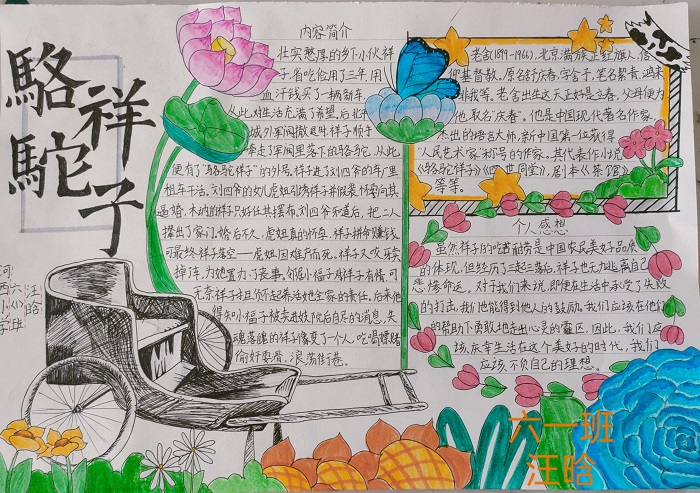 駱駝
祥子
河西小学
六(1)班
汪晗
内容简介
壮实憨厚的乡下小伙祥
子省吃俭用了三年,用
血汗钱买了一辆新车
从此,对生活充满了希望,后北平
城外军阀撤退时祥子顺手
牵走了军阀里落下的骆驼,从此
便有了“骆驼祥子”的外号,祥子进了刘四爷的车厂里
租车干活。刘四爷的女儿虎妞引诱祥子并假装怀孕向其
逼婚。木讷的祥子只好任其摆布,刘四爷知道后,把二人
撵出了家门。婚后不久,虎妞真的怀孕。祥子拼命赚钱
可最终祥子落空——虎妞因难产而死。祥子又咬牙卖
掉了车,为她置办了丧事。邻居小福子与祥子有情,可
无奈祥子担负不起养活她全家的责任,后来他
得知小福子被卖进妓院后自尽的消息,失
魂落魄的祥子像变了一个人,吃喝嫖赌
偷奸耍滑,浪荡街巷。
老舍(1899-1966),北京满族正红旗人,信
仰基督教,原名舒庆春,字舍予,笔名絜青、鸿来
非我等。老舍出生这天正好是立春,父母便为
他取名“庆春”。他是中国现代著名作家、
杰出的语言大师,新中国第一位获得
“人民艺术家”称号的作家。其代表作有
《骆驼祥子》《四世同堂》,剧本《茶馆》
等等。
个人感想
虽然祥子的吃苦耐劳是中国农民美好品质
的体现,但经历了三起三落后,祥子也无力逃离自己
悲惨命运。对于我们来说,即便在生活中承受了失败
的打击,我们也能得到他人的鼓励。我们应该在他们
的帮助下勇敢地走出心灵的霾区,因此,我们应
该庆幸生活在这个美好的时代,我们
应该不负自己的理想。
六一班
汪晗